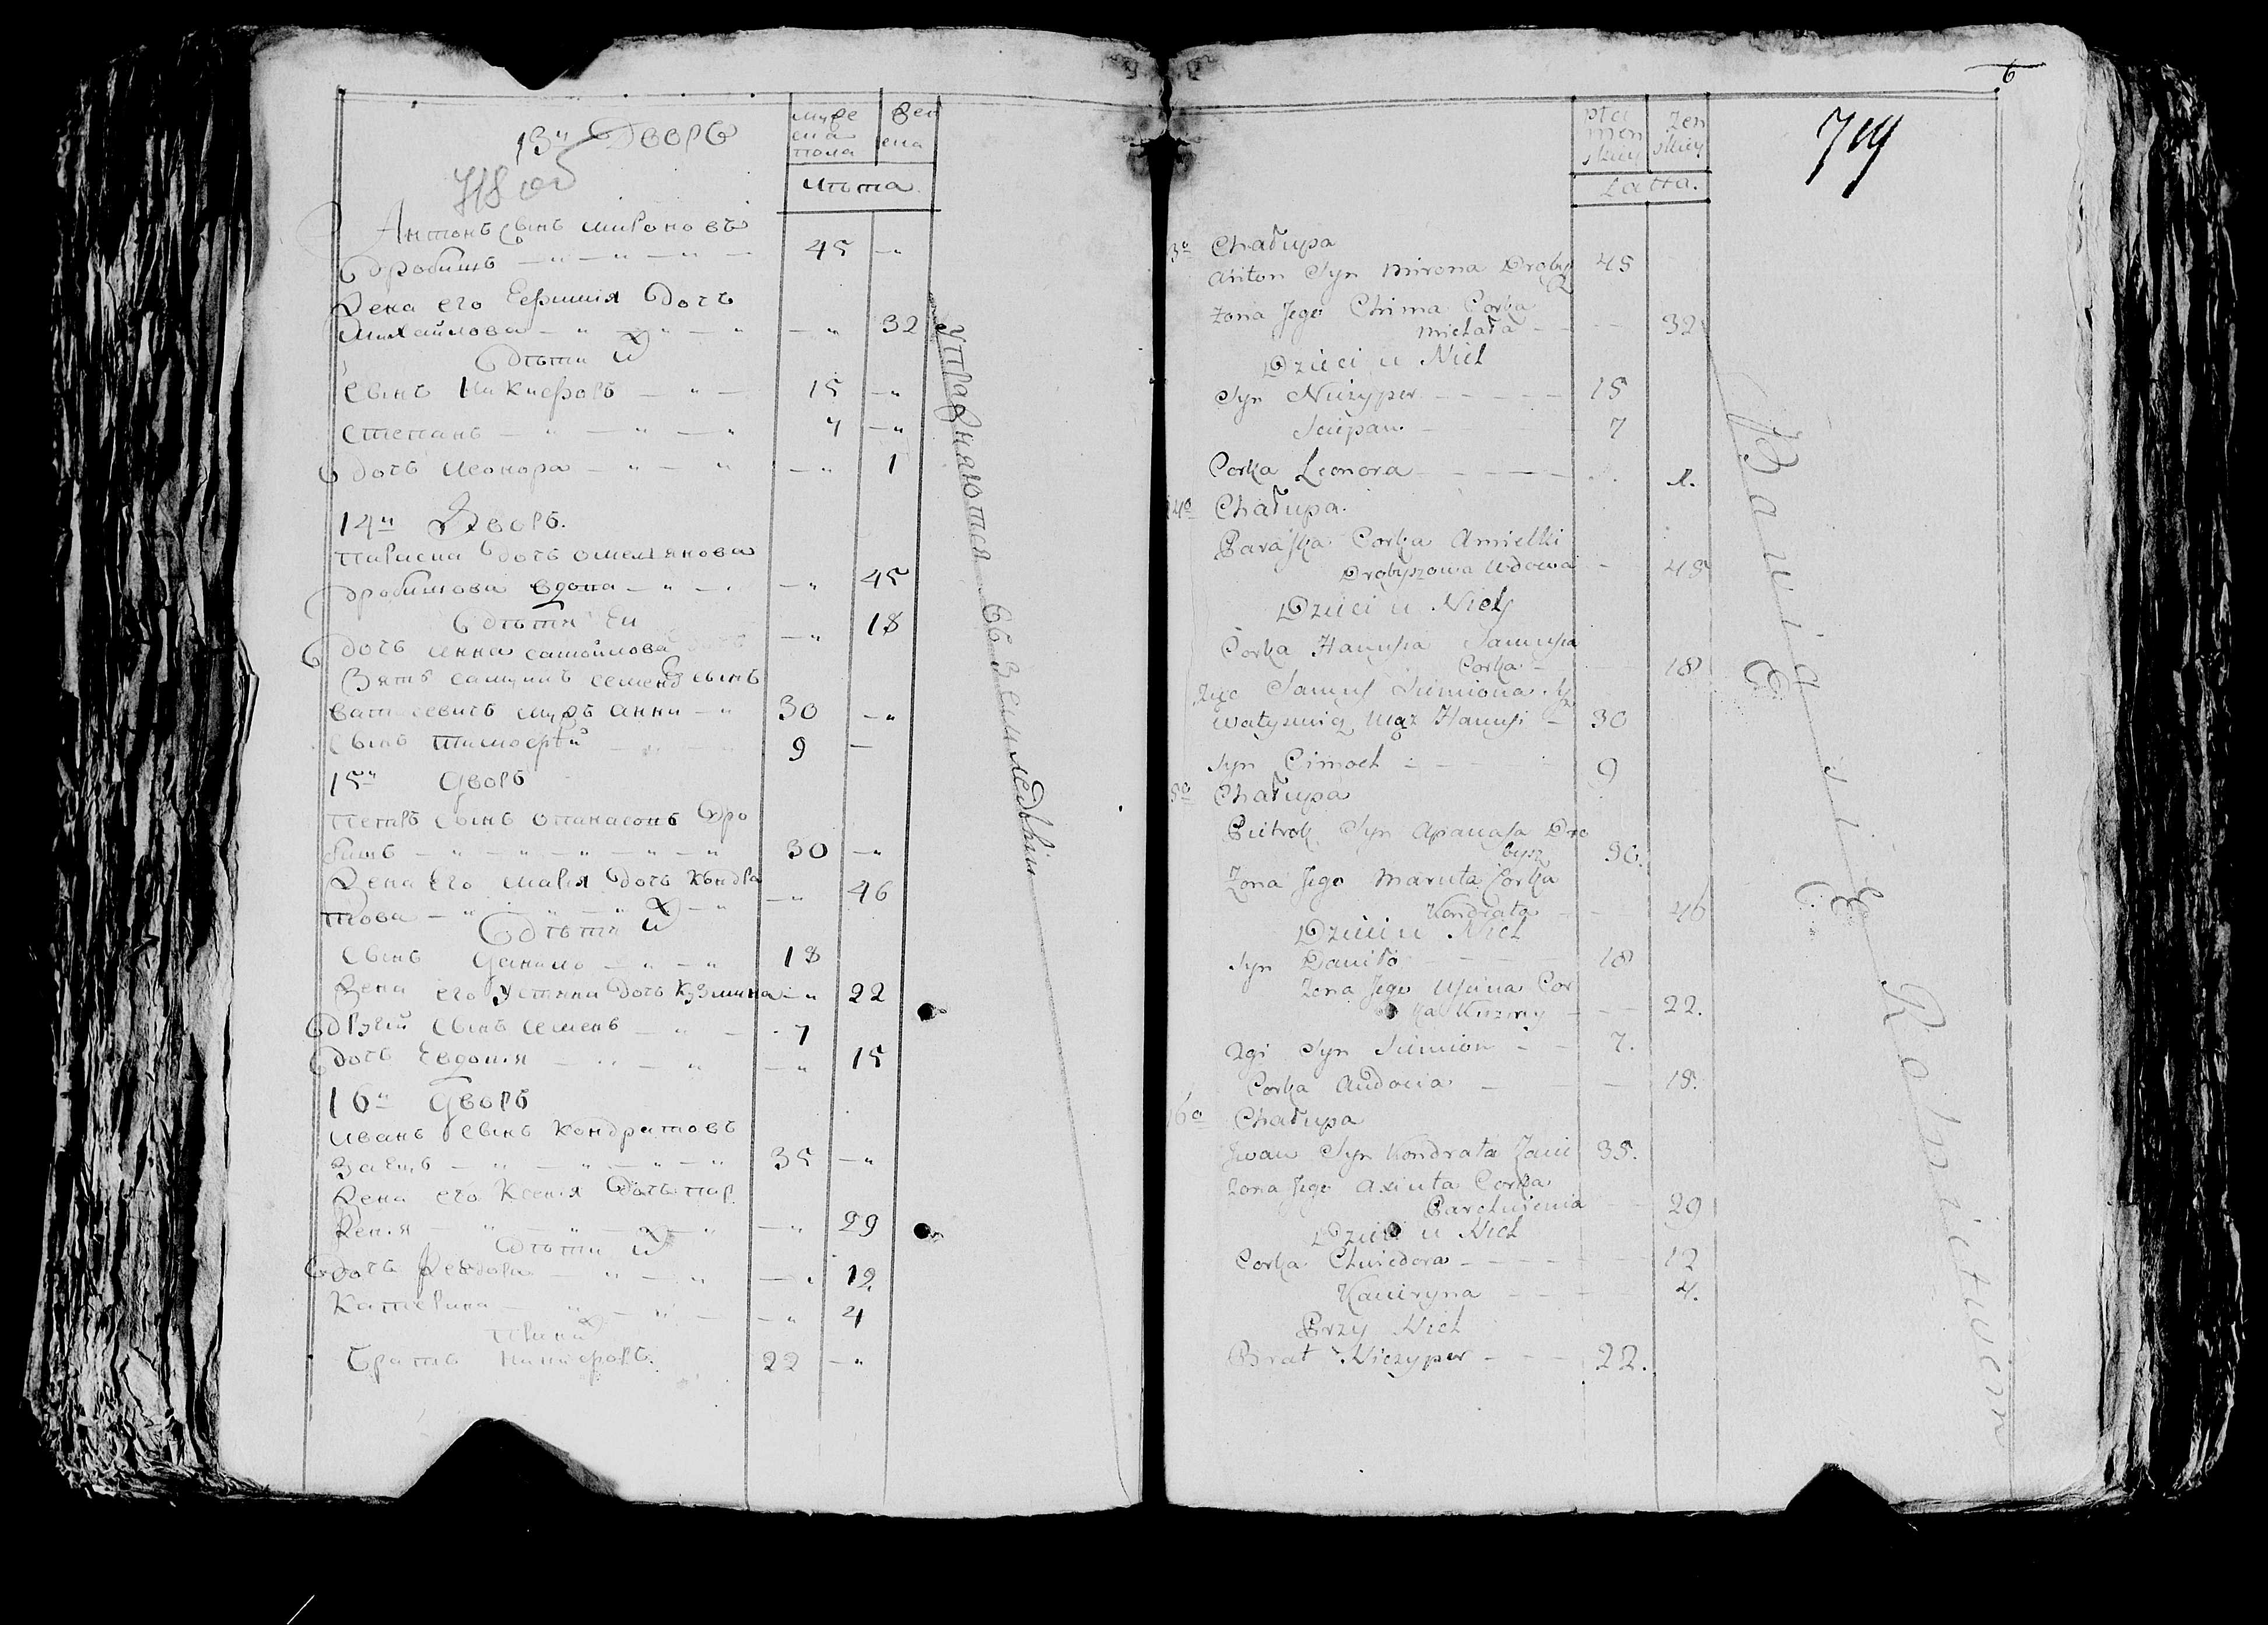 13й Дворъ
718 об
муже
ска
пола
жен
ска
Лѣта
Антонъ сынъ мироновъ
Дробишъ — " — " — " — 45 — "
Жена его Еєримія дочъ
Михайлова — " — " — " — " 32
Дѣти их
сынъ Никиєоръ — " — 15 — "
Степанъ — " — " — " 7 — "
дочъ Леонора — " — " — " 1
14й Дворъ.
Параска дочъ омелянова
Дробишова вдова — " — " — " 45
Дѣти Еи
дочъ Анна самойлова — " 18
Зять самуилъ семена сынъ
мужъ анны — " 30 — "
сынъ тимоєей 9 —
15й Дворъ
Петръ сынъ опанасовъ Дро
бишъ — " — " — " — " — " 30 — "
Жена его марія дочъ кондра
това — " — " — " — " — " 46
Дѣти их
сынъ Данило — " — " 18
Жена его Устина дочъ Кузмина — " 22
другій сынъ семенъ — " — 7
дочъ Евдокія — " — " — " 15
16й Дворъ
иванъ сынъ кондратовъ
Заецъ — " — " — " — " 35 — "
Жена его Ксенія дочъ пар
— " — " — " — " — " 29
Дѣти их
дочъ Ѳеодора — " — " — " 12
Катерина — " — " — " 4
При них
братъ Никиєоръ. 22 — "
упражняются въ земледѣліи
6
719
płci
męs
kiey
żeń
skiey
Latta.
13o Chałupa
Anton Syn Mirona Droby
sz 45
Zona Jego Chima Corka
Michała — — — 32
Dzieci u Nich
Syn Niczyper — — — — — 15
Sciepan — 7
Corka Leonora — — — — 1.
14o Chałupa.
Paraska Corka Amielki
Drobyszowa Wdowa — 45
Dzieci u Niey
Corka Hanusia Samusia
Corka — 18
Zięć Samuś Siemiona Sy
Mąż Hanusi — 30
Syn Cimoch — — — 9
15o Chałupa
Pietrok Syn Apanasa Dro
bysz 30.
Zona Jego Maruta Corka
Kondrata — 46
Dzieci u Nich
Syn Daniło — — — 18
Zona Jego Usцina Cor
ka Kuzmy — — — 22.
2gi Syn Siemion — — 7.
Corka Audocia — — 15.
16o Chałupa
Jwan Syn Kondrata Zaiec 35.
Zona Jego Axiuta Corka
Parchwienia — 29
Dzieci u Nich
Corka Chwiedora — — — — 12
Kaciryna — — — 4.
Przy Nich
Brat Niczyper — — — 22.
Bawią się Rolnictwem